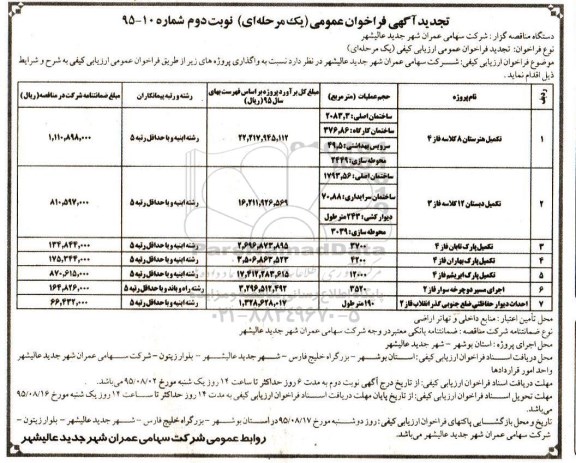 تجدید آگهی فراخوان عمومی (یک مرحله‌ای) نوبت دوم شماره ۱۰-۹۵
دستگاه مناقصه گزار : شرکت سهامی عمران شهر جدید عالیشهر
نوع فراخوان: تجدید فراخوان عمومی ارزیابی کیفی (یک مرحله‌ای)
موضوع فراخوان ارزیابی کیفی: شرکت سهامی عمران شهر جدید عالیشهر در نظر دارد نسبت به واگذاری پروژه های زیر از طریق فراخوان عمومی ارزیابی کیفی به شرح و شرایط
ذیل اقدام نماید.
ردیف | نام پروژه | حجم عملیات (متر مربع) | مبلغ کل برآورد پروژه بر اساس فهرست بهای سال ۹۵ (ریال) | رشته و رتبه پیمانکاران | مبلغ ضمانتنامه شرکت در مناقصه (ریال)
۱ | تکمیل هنرستان ۸ کلاسه فاز ۴ | ساختمان اصلی: ۲۰۸۳,۳ | ۲۲,۲۱۷,۹۴۵,۱۱۲ | رشته ابنیه و با حداقل رتبه ۵ | ۱,۱۱۰,۸۹۸,۰۰۰
ساختمان کارگاه: ۳۷۶,۸۶
سرویس بهداشتی: ۴۹,۵
محوطه سازی: ۲۴۴۹
۲ | تکمیل دبستان ۱۲ کلاسه فاز ۳ | ساختمان اصلی: ۱۷۹۳,۵۶ | ۱۶,۲۱۱,۹۲۶,۵۶۹ | رشته ابنیه و با حداقل رتبه ۵ | ۸۱۰,۵۹۷,۰۰۰
ساختمان سرایداری: ۷۰,۸۸
دیوار کشی: ۲۴۳ متر طول
محوطه سازی: ۳۰۳۹
۳ | تکمیل پارک تابان فاز ۴ | ۳۷۰۰ | ۲,۶۹۶,۸۷۳,۸۹۵ | رشته ابنیه و با حداقل رتبه ۵ | ۱۳۴,۸۴۴,۰۰۰
۴ | تکمیل پارک بهاران فاز ۴ | ۴۲۰۰ | ۳,۵۰۶,۸۶۳,۵۲۳ | رشته ابنیه و با حداقل رتبه ۵ | ۱۷۵,۳۴۴,۰۰۰
۵ | تکمیل پارک ابریشم فاز ۴ | ۱۲۰۰۰ | ۱۷,۴۱۲,۲۸۳,۶۱۵ | رشته ابنیه و با حداقل رتبه ۵ | ۸۷۰,۶۱۵,۰۰۰
۶ | اجرای مسیر دوچرخه سوار فاز ۲ | ۳۵۲۰ | ۳,۲۹۶,۵۱۲,۴۹۲ | رشته راه و باند و با حداقل رتبه ۵ | ۱۶۴,۸۲۶,۰۰۰
۷ | احداث دیوار حفاظتی ضلع جنوبی گذر انقلاب فاز ۲ | ۱۹۰ متر طول | ۱,۳۲۸,۶۲۸,۰۱۷ | رشته ابنیه و با حداقل رتبه ۵ | ۶۶,۴۳۲,۰۰۰
محل تأمین اعتبار: منابع داخلی و تهاتر اراضی
نوع ضمانتنامه شرکت مناقصه : ضمانتنامه بانکی معتبر در وجه شرکت سهامی عمران شهر جدید عالیشهر
محل اجرای پروژه : استان بوشهر - شهر جدید عالیشهر
محل دریافت اسناد فراخوان ارزیابی کیفی: استان بوشهر - بزرگراه خلیج فارس - شهر جدید عالیشهر - بلوار زیتون - شرکت سهامی عمران شهر جدید عالیشهر
واحد امور قراردادها
مهلت دریافت اسناد فراخوان ارزیابی کیفی: از تاریخ درج آگهی نوبت دوم به مدت ۶ روز حداکثر تا ساعت ۱۴ روز یک شنبه مورخ ۹۵/۰۸/۰۲ می‌باشد.
مهلت تحویل اسناد فراخوان ارزیابی کیفی: از تاریخ پایان مهلت دریافت اسناد فراخوان ارزیابی کیفی به مدت ۱۴ روز حداکثر تا ساعت ۱۴ روز یک شنبه مورخ ۹۵/۰۸/۱۶
می‌باشد.
تاریخ و محل بازگشایی پاکتهای فراخوان ارزیابی کیفی: روز دوشنبه مورخ ۹۵/۰۸/۱۷ در استان بوشهر - بزرگراه خلیج فارس - شهر جدید عالیشهر - بلوار زیتون -
شرکت سهامی عمران شهر جدید عالیشهر می‌باشد.
روابط عمومی شرکت سهامی عمران شهر جدید عالیشهر
۰۲۱-۸۸۳۴۹۶۷۰-۵